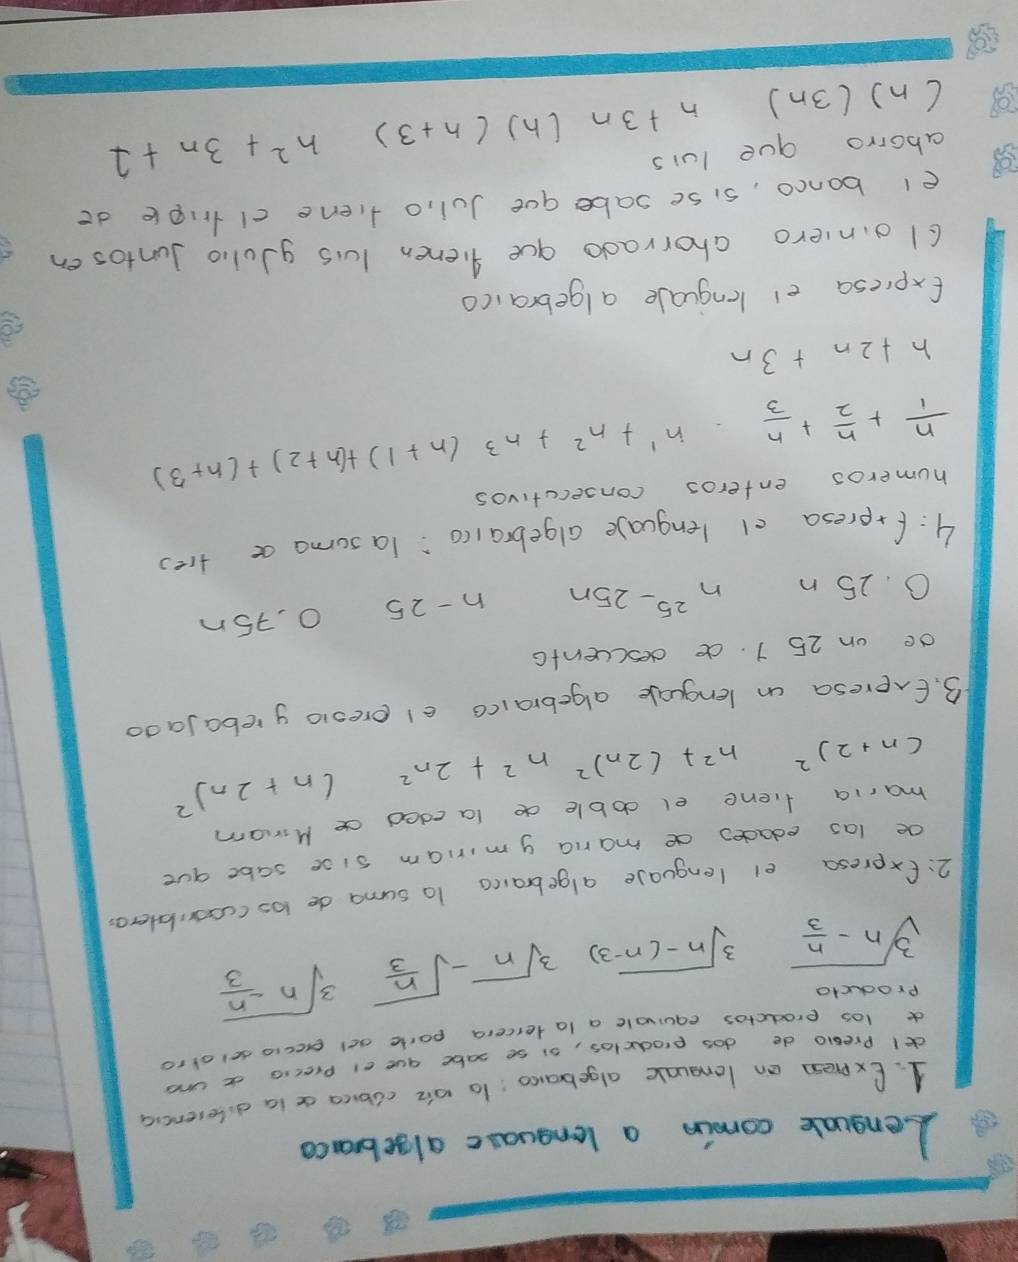 Lenguaje común a lenguaje algebraico
1.- Expresa en lenguaje algebraico: la raíz cúbica de la diferencia
del Presio de dos productos, si se sabe que el Precio de uno
de los productos equivale a la tercera parte del precio del otro
Producto
∛(n - n/3) ∛(n-(n-3)) ∛n - √(n/3) ∛(n - n/3)
2: Expresa el lenguaje algebraico la suma de los cuadrilateros
de las edades de maria y miriam si se sabe que
maria tiene el doble de la edad de Miriam
(n+2)² n²+(2n)² n²+2n² (n+2n)²
3. Expresa un lenguaje algebraico el presio y rebajado
de un 25 %. de descuento
0.25n n 25-25n n-25 0.75n
4: Expresa el lenguaje algebraico: la suma de tres
numeros enteros consecutivos
n/1 + n/2 + n/3 . n¹+n²+n³ (n+1)+(n+2)+(n+3)
n+2n+3n
Expresa el lenguaje algebraico
El diniero ahorrado que tienen luis y Julio Juntos en
el banco, si se sabe que Julio tiene el triple de
ahorro que luis
(n)(3n) n+3n (n)(n+3) n²+3n+1